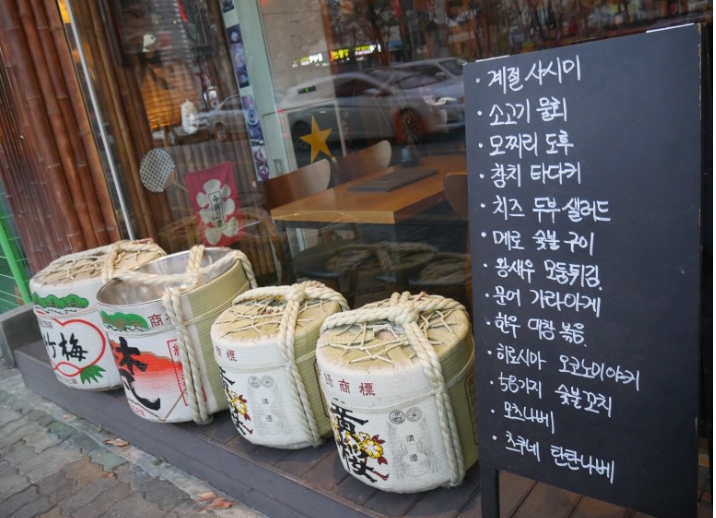 · 계절 샤시미
· 소고기 물회
· 모찌리 도후
· 참치 타다키
· 치즈 두부샐러드
· 메로 숯불 구이
· 왕새우 모둠튀김.
· 문어 가라아게
· 한우 대창 볶음.
· 히로시마 오코노미야키
· 숯불꼬치
· 모츠나베
· 츠쿠네 탄탄나베
竹梅
商
商標
商標